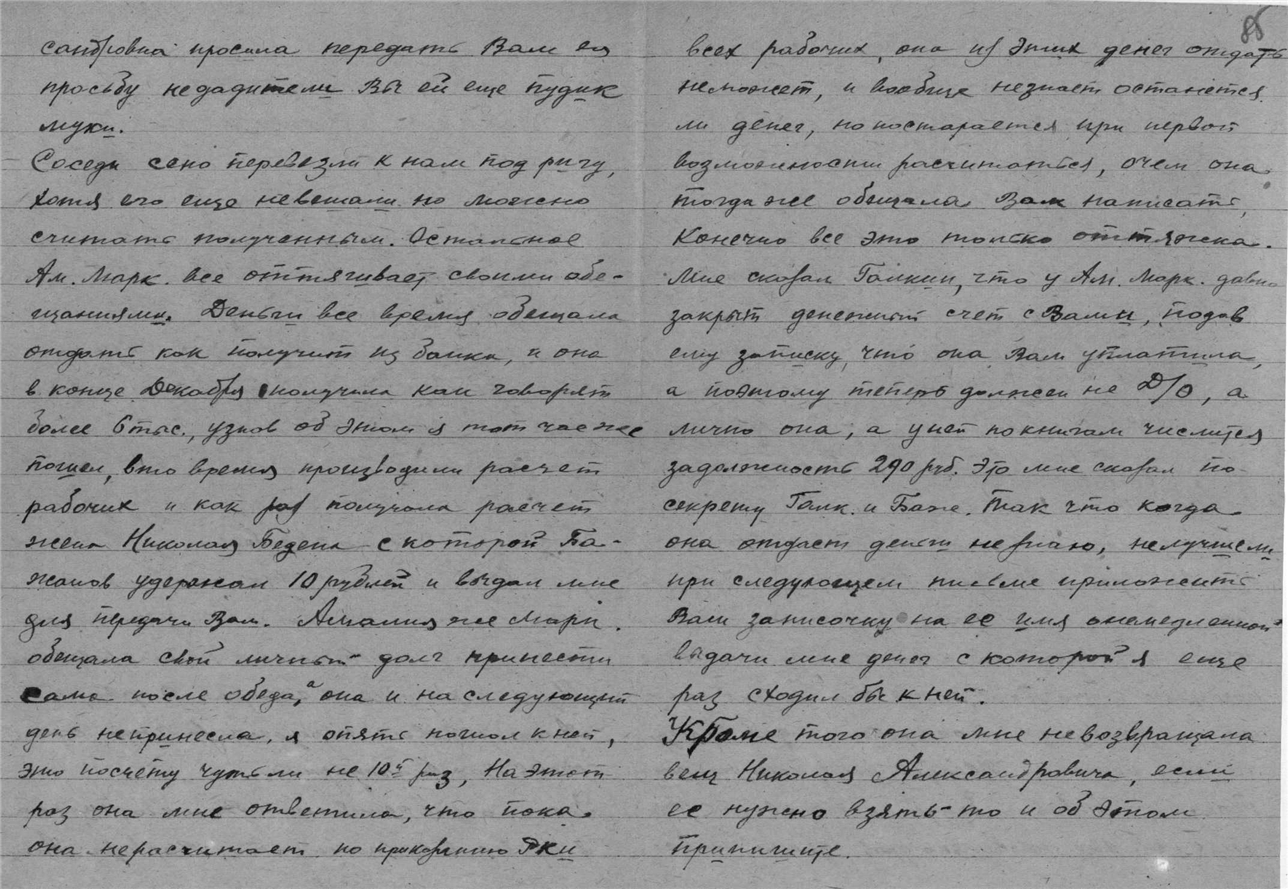 сандровна просила передать Вам ея
просьбу недадителе Вы ей еще пудик
муки.
Соседи сено перевезли к нам под ригу,
хотя его еще невешали но можно
считать полученным. Остальное
Ам. Марк. все оттягивает своими обе-
щаниями. Деньги все время обещала
отдать как получит из банка, и она
в конце Декабря получила как говорят
более 6 тыс., узнав об этом я тот час же
пошел, вто время производили расчет
рабочих и как раз получала расчет
жена Николая Бедена с которой Ба-
жанов удержал 10 рублей и выдал мне
для передачи Вам. Амалия же Марк.
обещала свой личный долг принести
сама после обеда, а она и на следующий
день непринесла, я опять пошол к ней,
это посчету чуть ли не 10й раз, На этот
раз она мне ответила, что пока
она нерасчитает по приказанию Рки
85
всех рабочих, она из этих денег отдать
неможет, и вообще незнает останется
ли денег, но постарается при первой
возможности расчитаться, очем она
тогда же обещала Вам написать,
Конечно все это только оттяжка.
Мне сказал Галкин, что у Ам. Марк. давно
закрыт денежный счет с Вами, подав
ему записку, что она Вам уплатила,
а поэтому теперь должен не Д/О, а
лично она, а у ней по книгам числится
задолжность 290 руб. Это мне сказал по-
секрету Галк. и Баж. Так что когда
она отдаст деньги не знаю, нелучшели
при следующем письме приложить
Вам записочку на ее имя онемедленной
выдачи мне денег с которой я еще
раз сходил бы к ней.
Кроме того она мне невозвращала
вещ Николая Александровича, если
ее нужно взять-то и об этом
припишите.